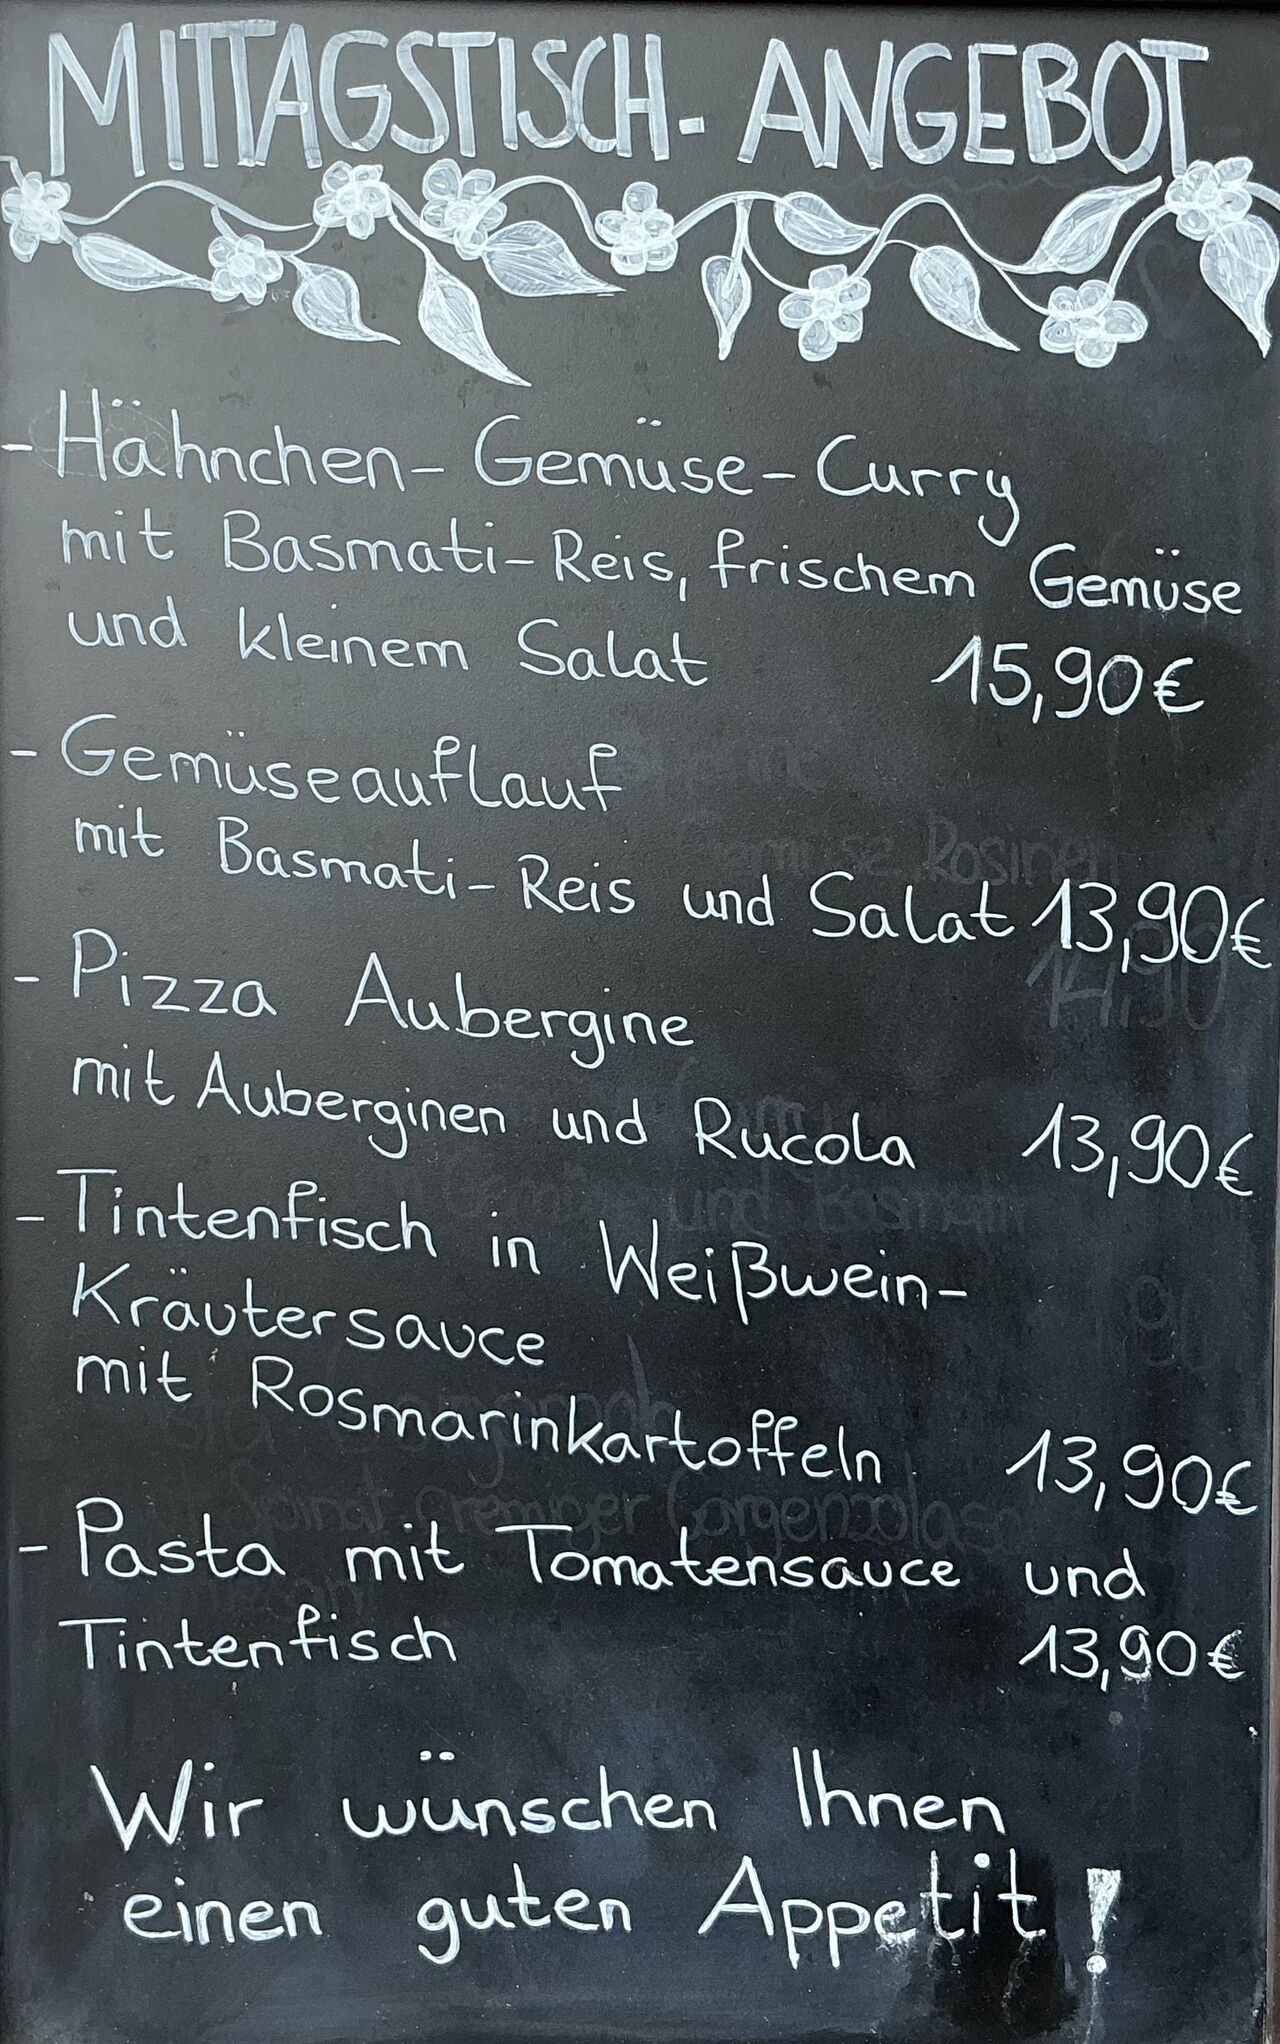 MITTAGSTISCH-ANGEBOT
- Hähnchen-Gemüse-Curry
mit Basmati-Reis, frischem Gemüse
und kleinem Salat 15,90€
- Gemüseauflauf
mit Basmati-Reis und Salat 13,90€
- Pizza Aubergine
mit Auberginen und Rucola 13,90€
- Tintenfisch in Weißwein-
Kräutersauce
mit Rosmarinkartoffeln 13,90€
- Pasta mit Tomatensauce und
Tintenfisch 13,90€
Wir wünschen Ihnen
einen guten Appetit!